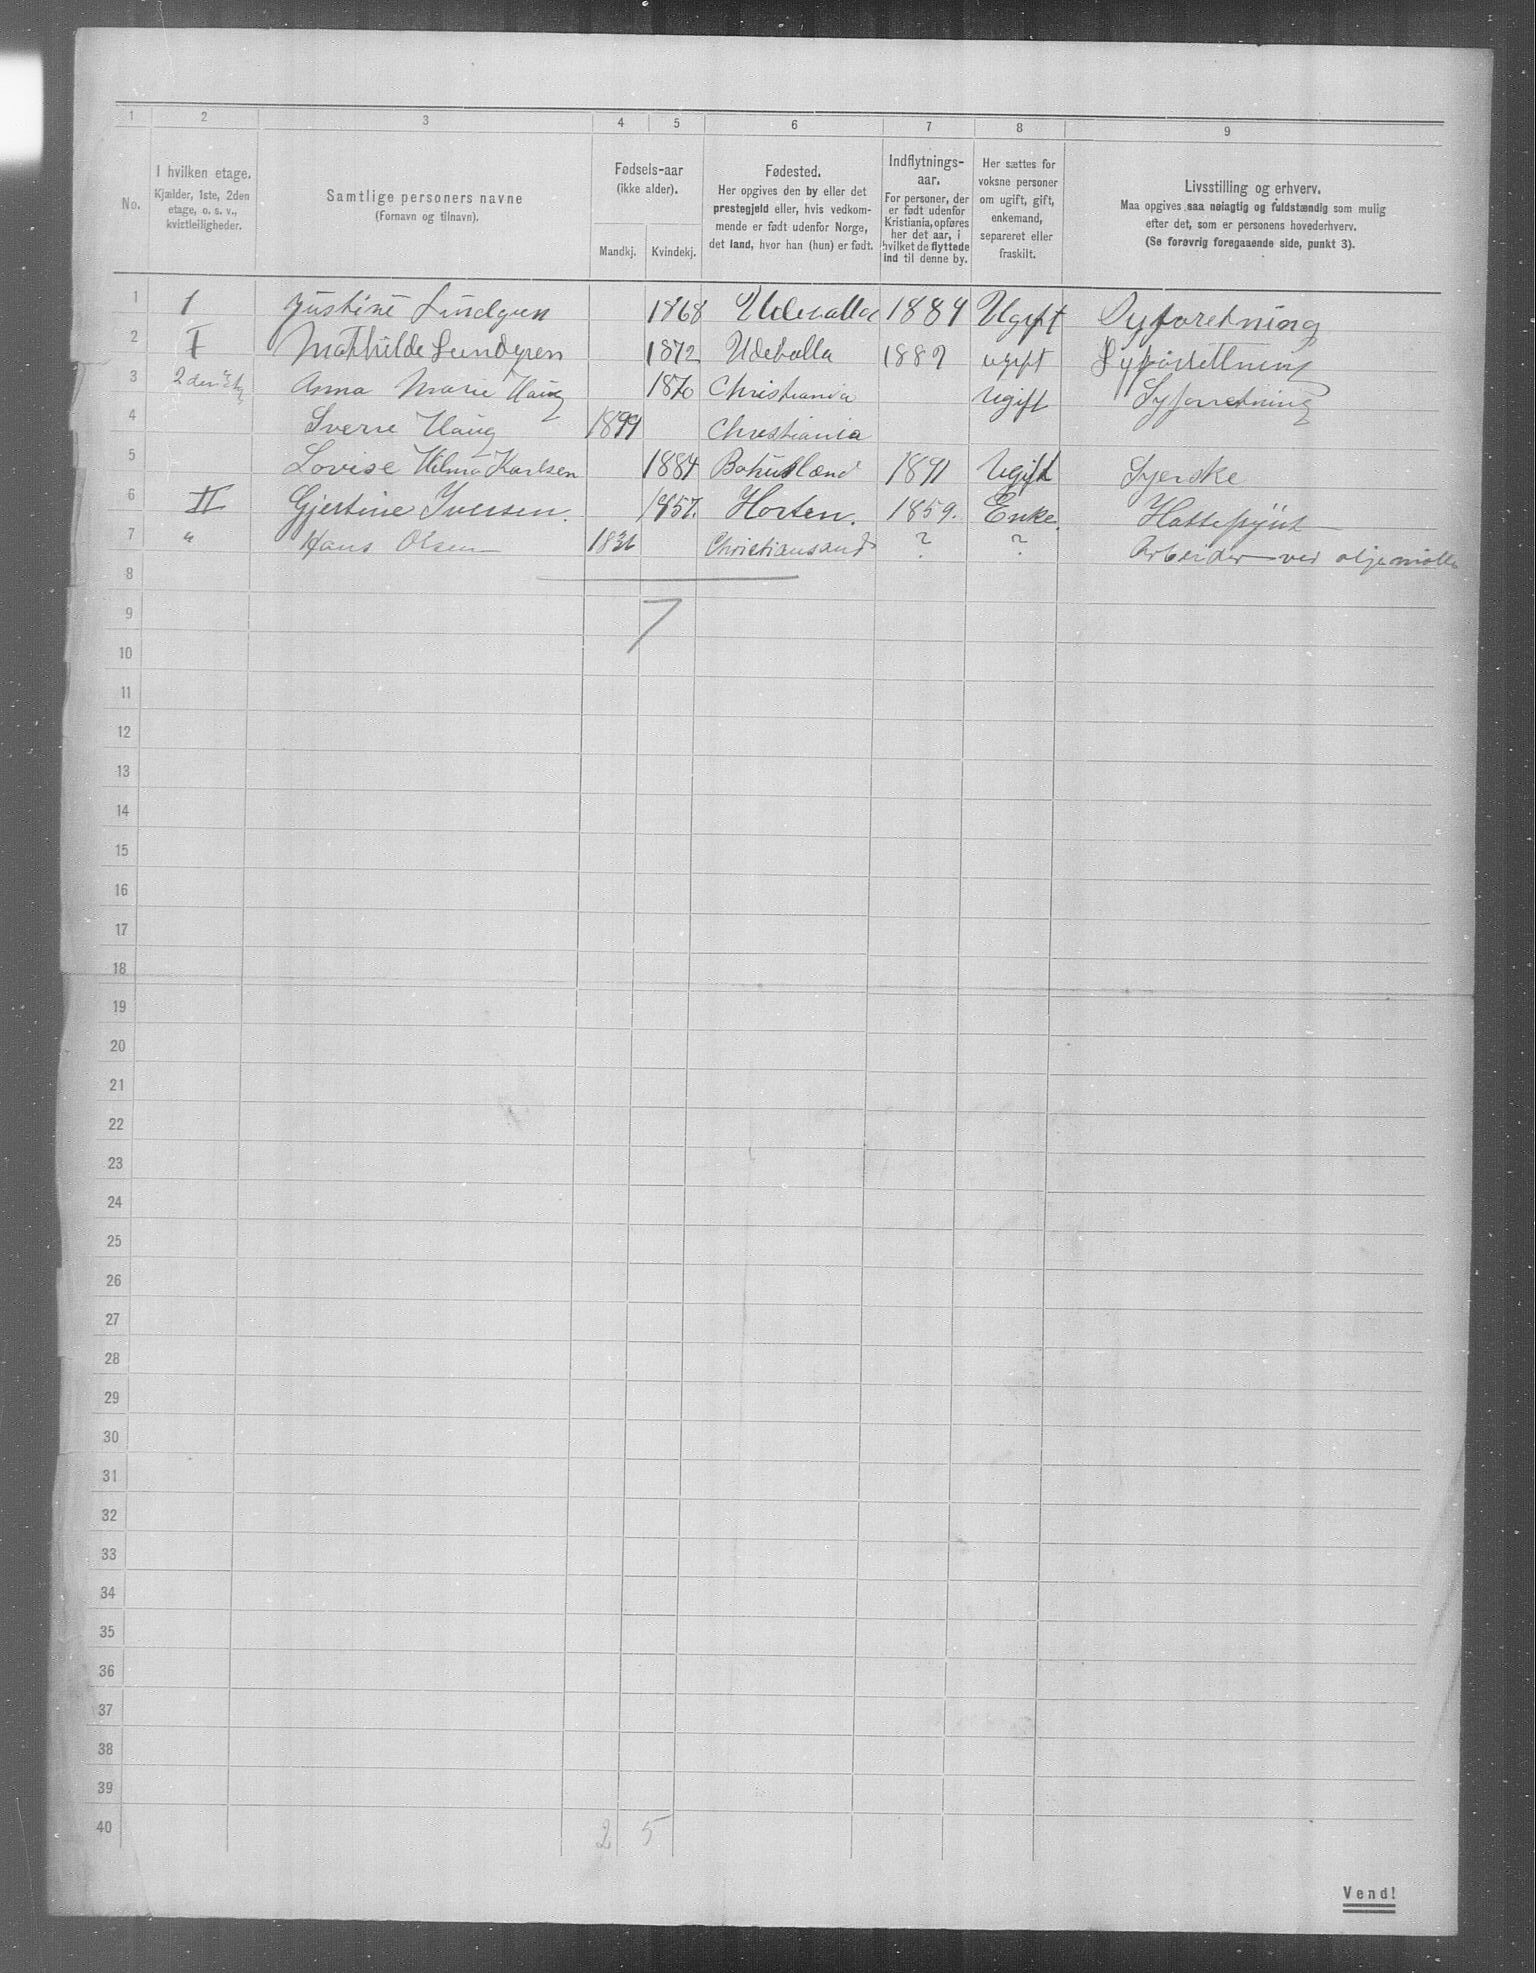 1 2 3 4 5 6 7 8 9
No.
I hvilken etage.
Kjælder, 1ste, 2den
etage, o. s. v.,
kvistleiligheder.
Samtlige personers navne
(Fornavn og tilnavn).
Fødsels-aar
(ikke alder).
Mandkj. Kvindekj.
Fødested.
Her opgives den by eller det
prestegjeld eller, hvis vedkom-
mende er født udenfor Norge,
det land, hvor han (hun) er født.
Indflytnings-
aar.
For personer, der
er født udenfor
Kristiania, opføres
her det aar, i
hvilket de flyttede
ind til denne by.
Her sættes for
voksne personer
om ugift, gift,
enkemand,
separeret eller
fraskilt.
Livsstilling og erhverv.
Maa opgives saa nøiagtig og fuldstændig som mulig
efter det, som er personens hovederhverv.
(Se forøvrig foregaaende side, punkt 3).
1 I Justine Lundgren 1868 Udevalla 1884 Ugift Syforetning
2 I Mathilde Lundgren 1872 Udevalla 1887 ugift Syforrettning
3 2den Etg Anna Marie Haug 1870 Christiania Ugift Syforretning
4 Sverre Haug 1899 Christiania
5 Lovise Hilma Karlsen 1884 Bohuslænd 1891 Ugift Syerske
6 II Gjertine Iversen. 1857. Horten. 1859. Enke.
7 " Hans Olsen 1836 Christiansand ? ? Arbeider ved oljemølle
8
7
9
10
11
12
13
14
15
16
17
18
19
20
21
22
23
24
25
26
27
28
29
30
31
32
33
34
35
36
37
38
39
40
2 5
Vend!